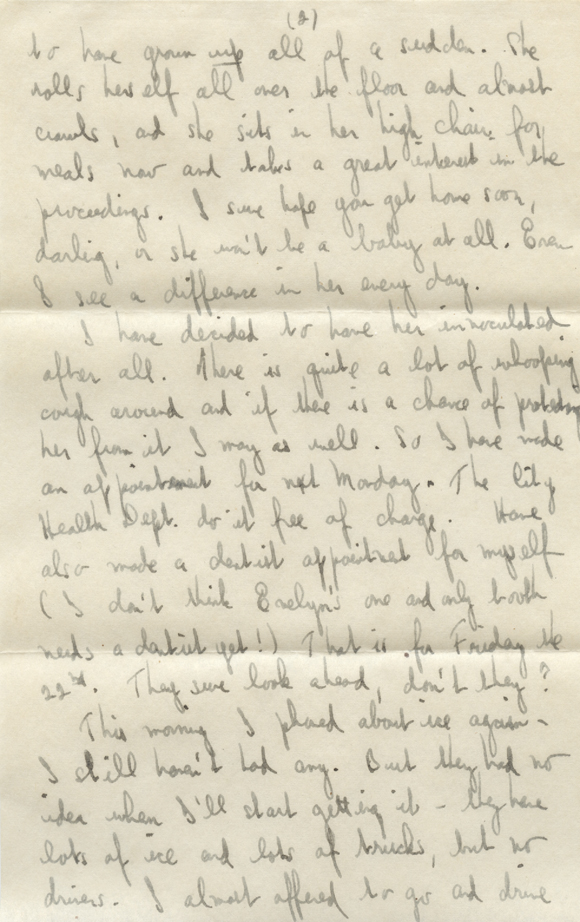 (2)
to have grown up all of a sudden. She
rolls herself all over the floor and almost
crawls, and she sits in her high chair for
meals now and takes a great interest in the
proceedings. I sure hope you get home soon,
darling, or she won't be a baby at all. Even
I see a difference in her every day.
I have decided to have her innoculated
after all. There is quite a lot of whooping
cough around and if there is a chance of protecting
her from it I may as well. So I have made
an appointment for next Monday. The City
Health Dept. do it free of charge. Have
also made a dentist appointment for myself
(I don't think Evelyn's one and only tooth
needs a dentist yet!) That is for Friday the
22nd. They sure look ahead, don't they?
This morning I phoned about ice again -
I still haven't had any. But they had no
idea when I'll start getting it - they have
lots of ice and lots of trucks, but no
drivers. I almost offered to go and drive